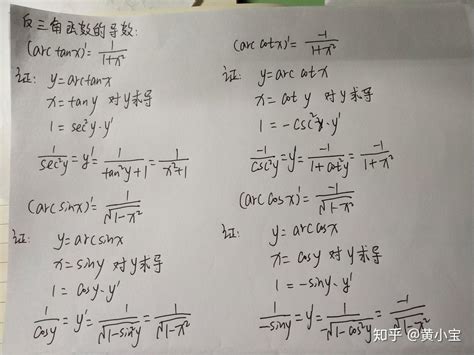 反三角函数的导数:
(arc tanx)' = 1/(1+x²)
证: y=arctanx
x=tany 对y求导
1=sec²y·y'
1/sec²y=y'=1/(tan²y+1)=1/(x²+1)
(arc sinx)'=1/√(1-x²)
证: y=arcsinx
x=siny 对y求导
1=cosy·y'
1/cosy=y'=1/√(1-sin²y)=1/√(1-x²)
(arc cotx)'=-1/(1+x²)
证: y=arc cotx
x=coty 对y求导
1=-csc²y·y'
-1/csc²y=y'=-1/(1+cot²y)=-1/(1+x²)
(arc cosx)'=-1/√(1-x²)
证: y=arccosx
x=cosy 对y求导
1=-siny·y'
1/-siny=y'=1/-√(1-cos²y)=-1/√(1-x²)
知乎 @黄小宝